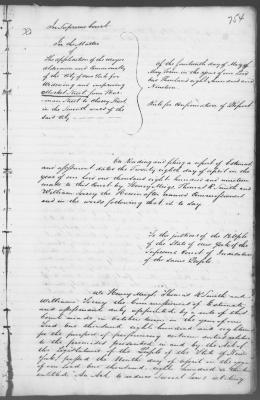 754
In Supreme Court
In the Matter
of
The application of the Mayor
Aldermen and Commonalty
of the City of New York for
Widening and improving
Market Street from
Street to Cherry Street
in the Seventh ward of the
said City
Of the fourteenth day of May of
May Term in the year of our Lord
one thousand eight hundred and
Nineteen
Rule for Confirmation of Report
On Reading and filing a report of Estimate
and assessment dated the Twenty eighth day of April in the
year of our Lord one thousand eight hundred and nineteen
made to this Court by Henry Meigs Thomas R. Smith and
William Torrey the Herein after named Commissioners
and in the words following that is to say
To the justices of the People
of the State of New York of the
Supreme Court of Judicature
of the same People
We Henry Meigs Thomas R. Smith and
William Torrey the Commissioners of Estimate
and assessment duly appointed by a rule of this
Court made in October term in the year of our
Lord one thousand eight hundred and eighteen
for the purpose of performing certain duties relative
to the premises presented in and by the act of
the Legislature of the People of the State of New
York passed the Ninth day of April in the year
of our Lord one thousand eight hundred and thirteen
entitled An Act to reduce Several laws